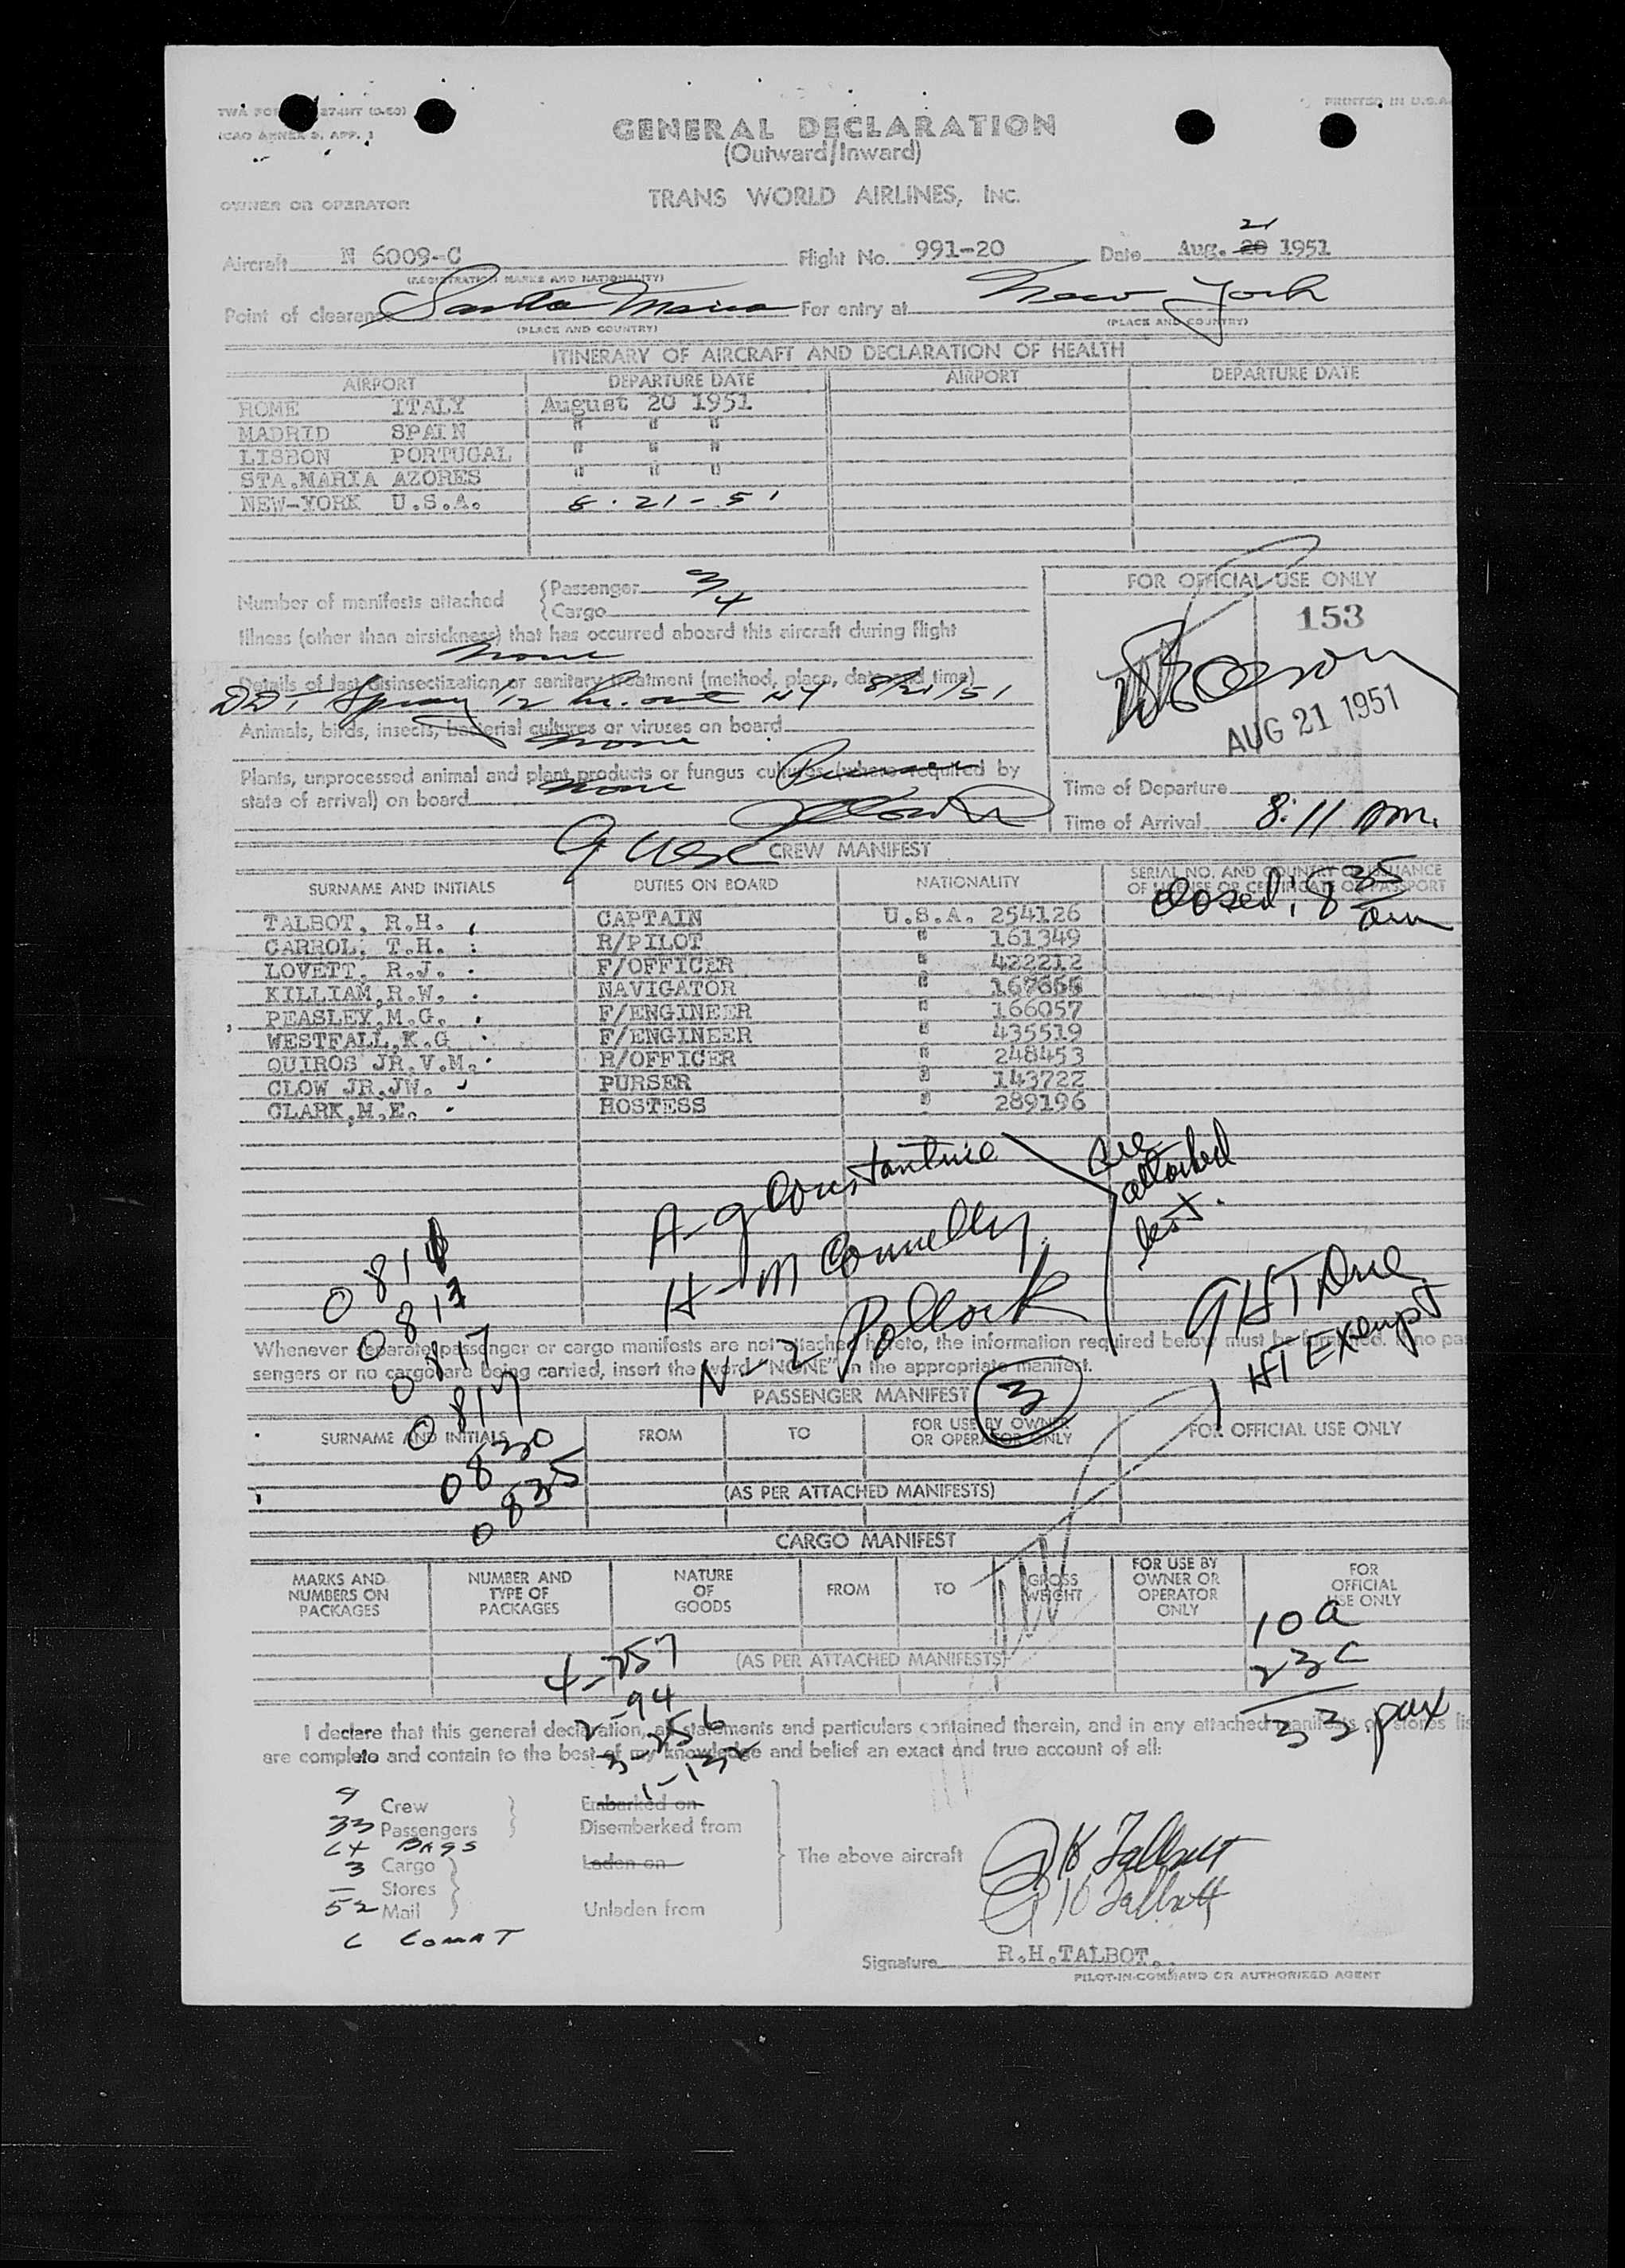 PRINTED IN U.S.A.
GENERAL DECLARATION
(Outward/Inward)
TRANS WORLD AIRLINES, INC.
OWNER OR OPERATOR
Aircraft N 6009-C Flight No. 991-20 Date Aug. 20 21 1951
(REGISTRATION MARKS AND NATIONALITY)
Point of clearance Santa Maria For entry at New York
(PLACE AND COUNTRY) (PLACE AND COUNTRY)
ITINERARY OF AIRCRAFT AND DECLARATION OF HEALTH
AIRPORT DEPARTURE DATE AIRPORT DEPARTURE DATE
ROME ITALY August 20 1951
MADRID SPAIN " " "
LISBON PORTUGAL " " "
STA.MARIA AZORES " " "
NEW-YORK U.S.A. 8-21-51
Number of manifests attached Passenger 3
Cargo 4
FOR OFFICIAL USE ONLY
153
Illness (other than airsickness) that has occurred aboard this aircraft during flight
none
Details of last disinsectization or sanitary treatment (method, place, date and time)
DDT Spray 1/2 hr. out NY 8/21/51
AUG 21 1951
Animals, birds, insects, bacterial cultures or viruses on board
none
Plants, unprocessed animal and plant products or fungus cultures (where required by
state of arrival) on board none
Time of Departure
Time of Arrival 8:11 am.
CREW MANIFEST
SURNAME AND INITIALS DUTIES ON BOARD NATIONALITY SERIAL NO. AND COUNTRY OF ISSUANCE
OF LICENSE OR CERTIFICATE OR PASSPORT
closed: 8 35 am
TALBOT, R.H. CAPTAIN U.S.A. 254126
CARROL, T.H. R/PILOT " 161349
LOVETT, R.J. F/OFFICER " 422212
KILLIAM,R.W. NAVIGATOR "
PEASLEY,M.G. F/ENGINEER " 166057
WESTFALL,K.G F/ENGINEER " 435519
QUIROS JR.V.M. R/OFFICER " 248453
CLOW JR.JW. PURSER " 143722
CLARK,M.E. HOSTESS " 289196
A-g Constantine
H-M Connelly
N-2 Pollock
see
attached
list.
9 HT Due
1 HT Exempt
0817
0817
0830
0835
Whenever separate passenger or cargo manifests are not attached hereto, the information required below must be furnished. If no pas
sengers or no cargo are being carried, insert the word "NONE" in the appropriate manifest.
PASSENGER MANIFEST 3
SURNAME AND INITIALS FROM TO FOR USE BY OWNER
OR OPERATOR ONLY FOR OFFICIAL USE ONLY
(AS PER ATTACHED MANIFESTS)
CARGO MANIFEST
MARKS AND
NUMBERS ON
PACKAGES
NUMBER AND
TYPE OF
PACKAGES
NATURE
OF
GOODS
FROM TO GROSS
WEIGHT
FOR USE BY
OWNER OR
OPERATOR
ONLY
FOR
OFFICIAL
USE ONLY
10 a
23 c
33 pax
(AS PER ATTACHED MANIFESTS)
4-257
2-94
3-256
1-132
I declare that this general declaration, all statements and particulars contained therein, and in any attached manifests or stores lis
are complete and contain to the best of my knowledge and belief an exact and true account of all:
9 Crew Embarked on
33 Passengers Disembarked from
BAGS
3 Cargo Laden on The above aircraft
— Stores
52 Mail Unladen from
COMAT
RH Talbott
RH Talbott
Signature R.H.TALBOT.
PILOT-IN-COMMAND OR AUTHORIZED AGENT